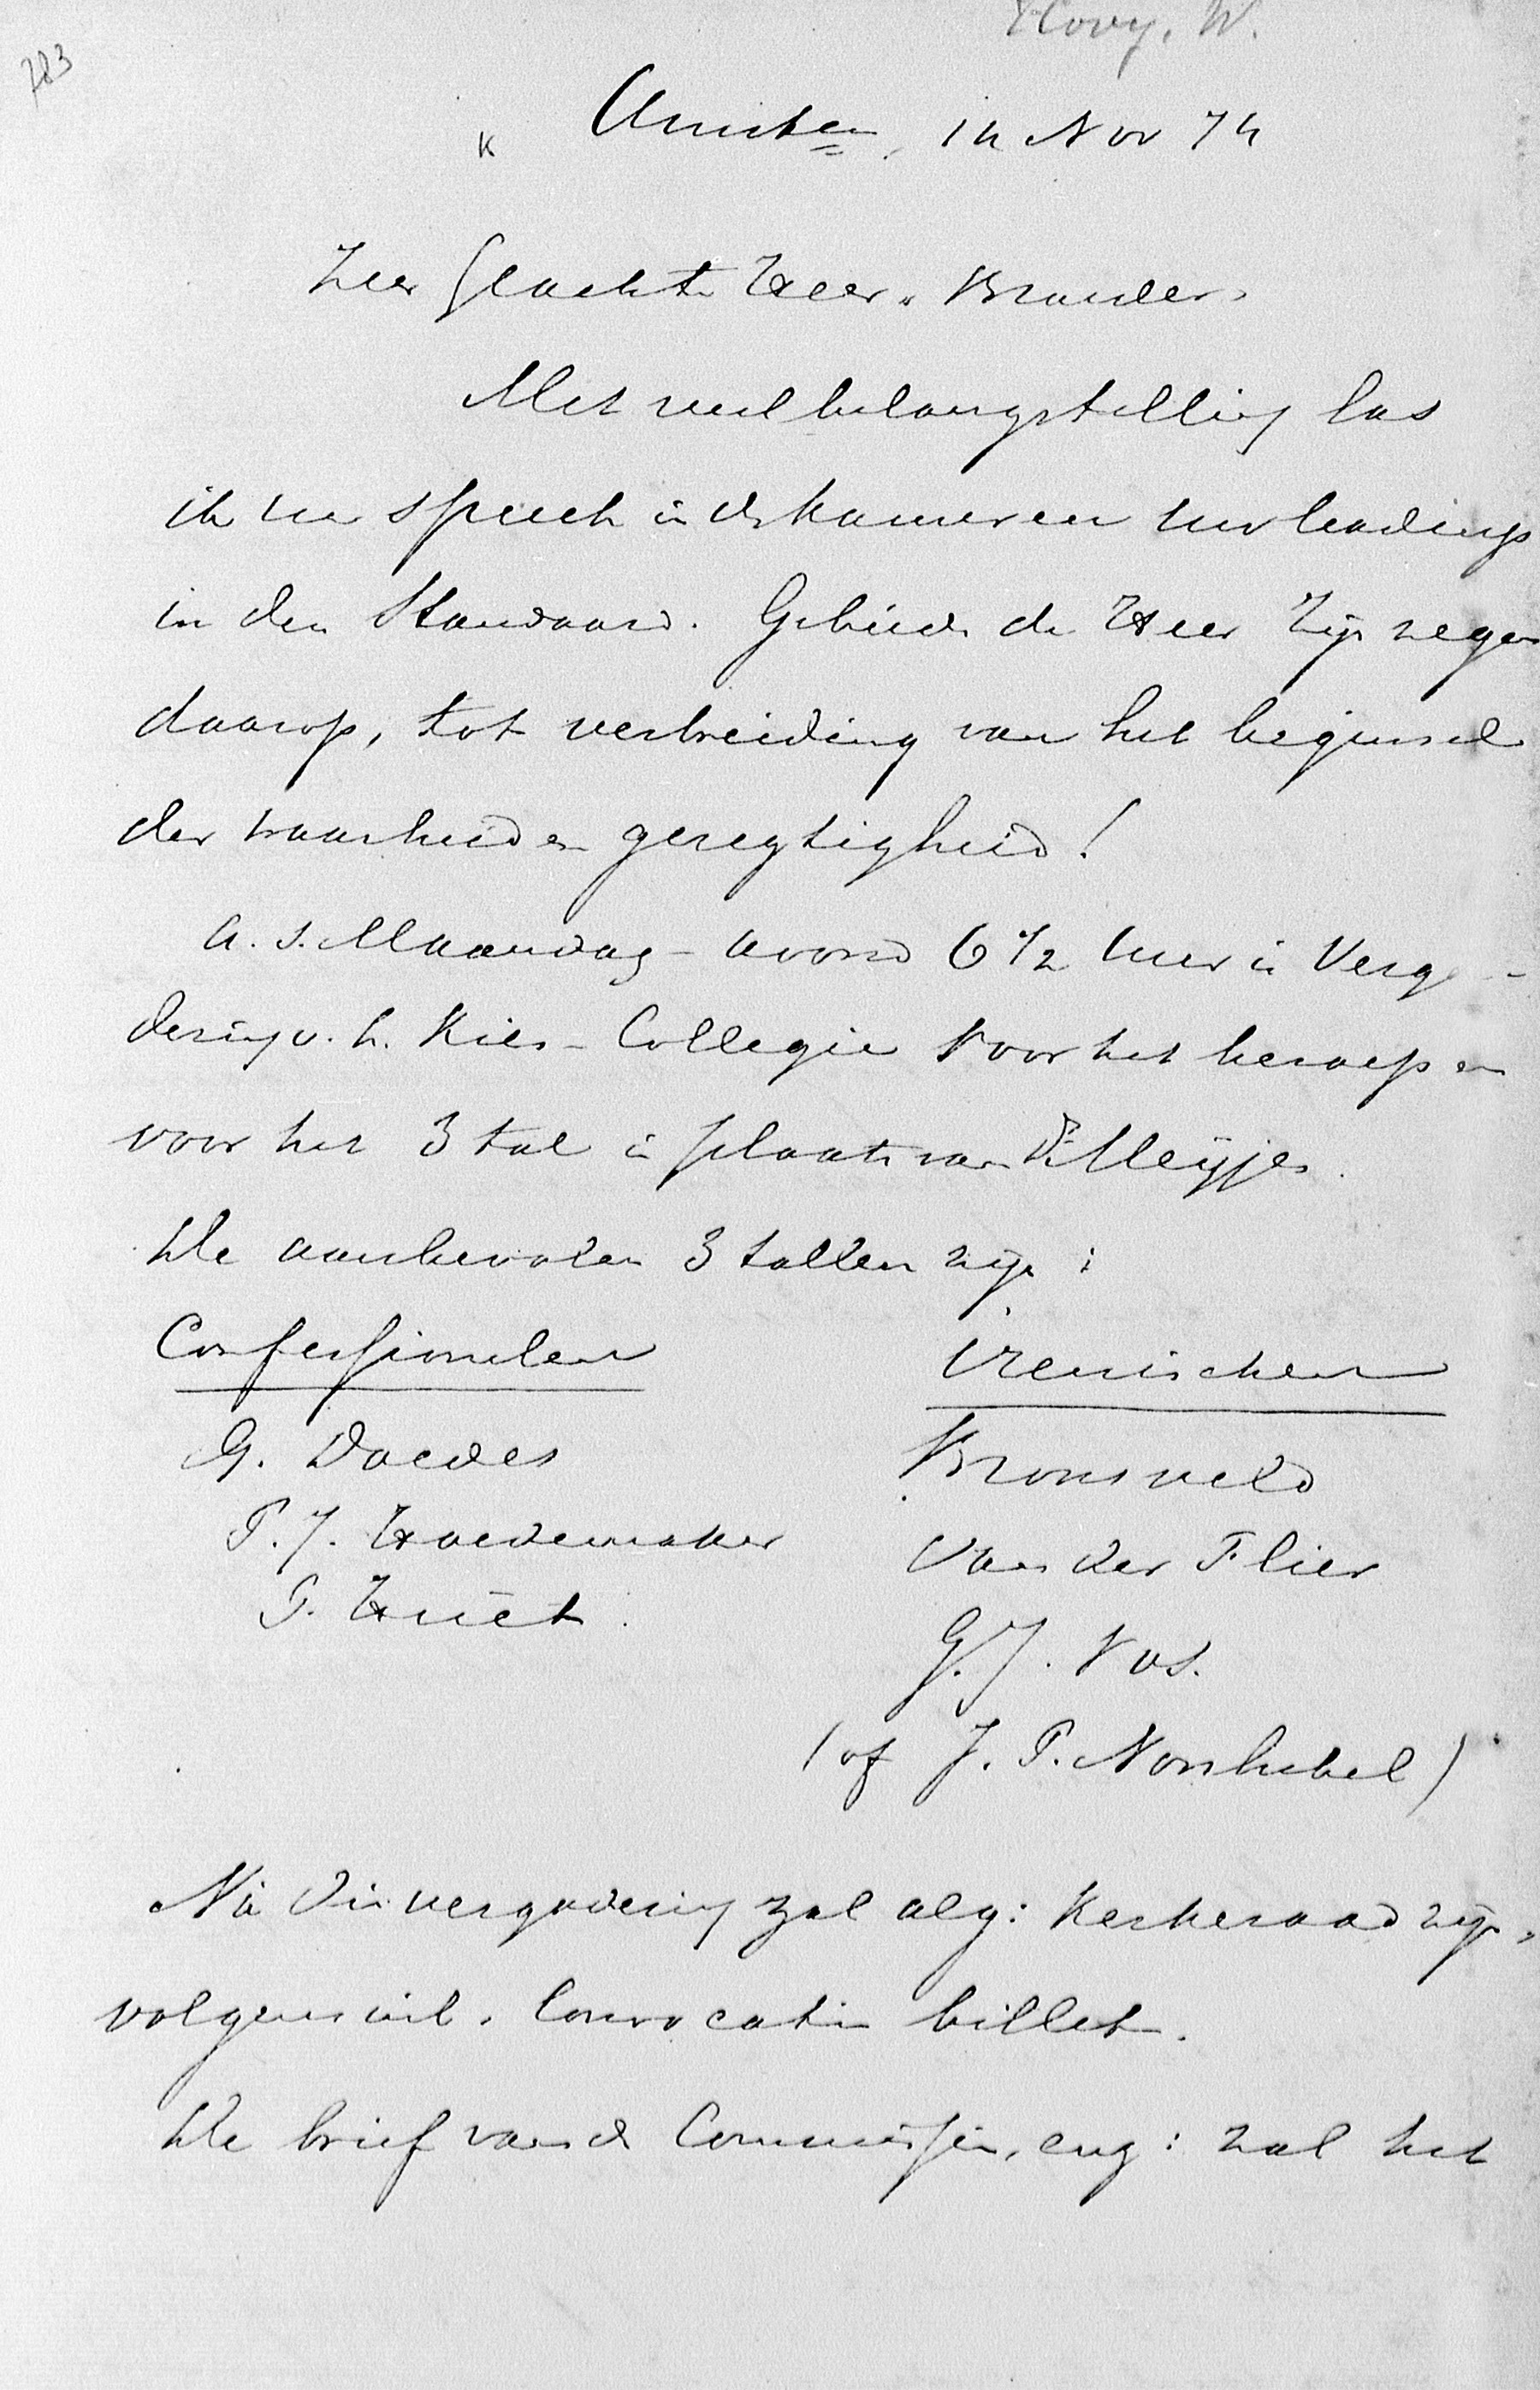 Hovy, W.
783
K Amsterd. 14 Nov 74
Zeer Geachte Heer & Broeder,
Met veel belangstelling las
ik uw speech in de kamer en uw leadings
in den Standaard. Gebiede de Heer Zijn zegen
daarop, tot verbreiding van het beginsel
der waarheid en geregtigheid!
A.s. Maandag-avond 6 1/2 uur is Verga-
dering v. h. Kies-Collegie voor het beroep en
voor het 3tal in plaats van Ds Meyjes.
De aanbevolen 3tallen zijn:
Confessionelen
Irenischen
G. Doedes
Bronsveld
P. J. Hoedemaker
van der Flier
P. Huët.
G. J. Vos.
(of J. P. Nonhebel)
Ná die vergadering zal alg: Kerkeraad zijn,
volgens convocatie billet.
De brief van de Commissie, eng: zal het